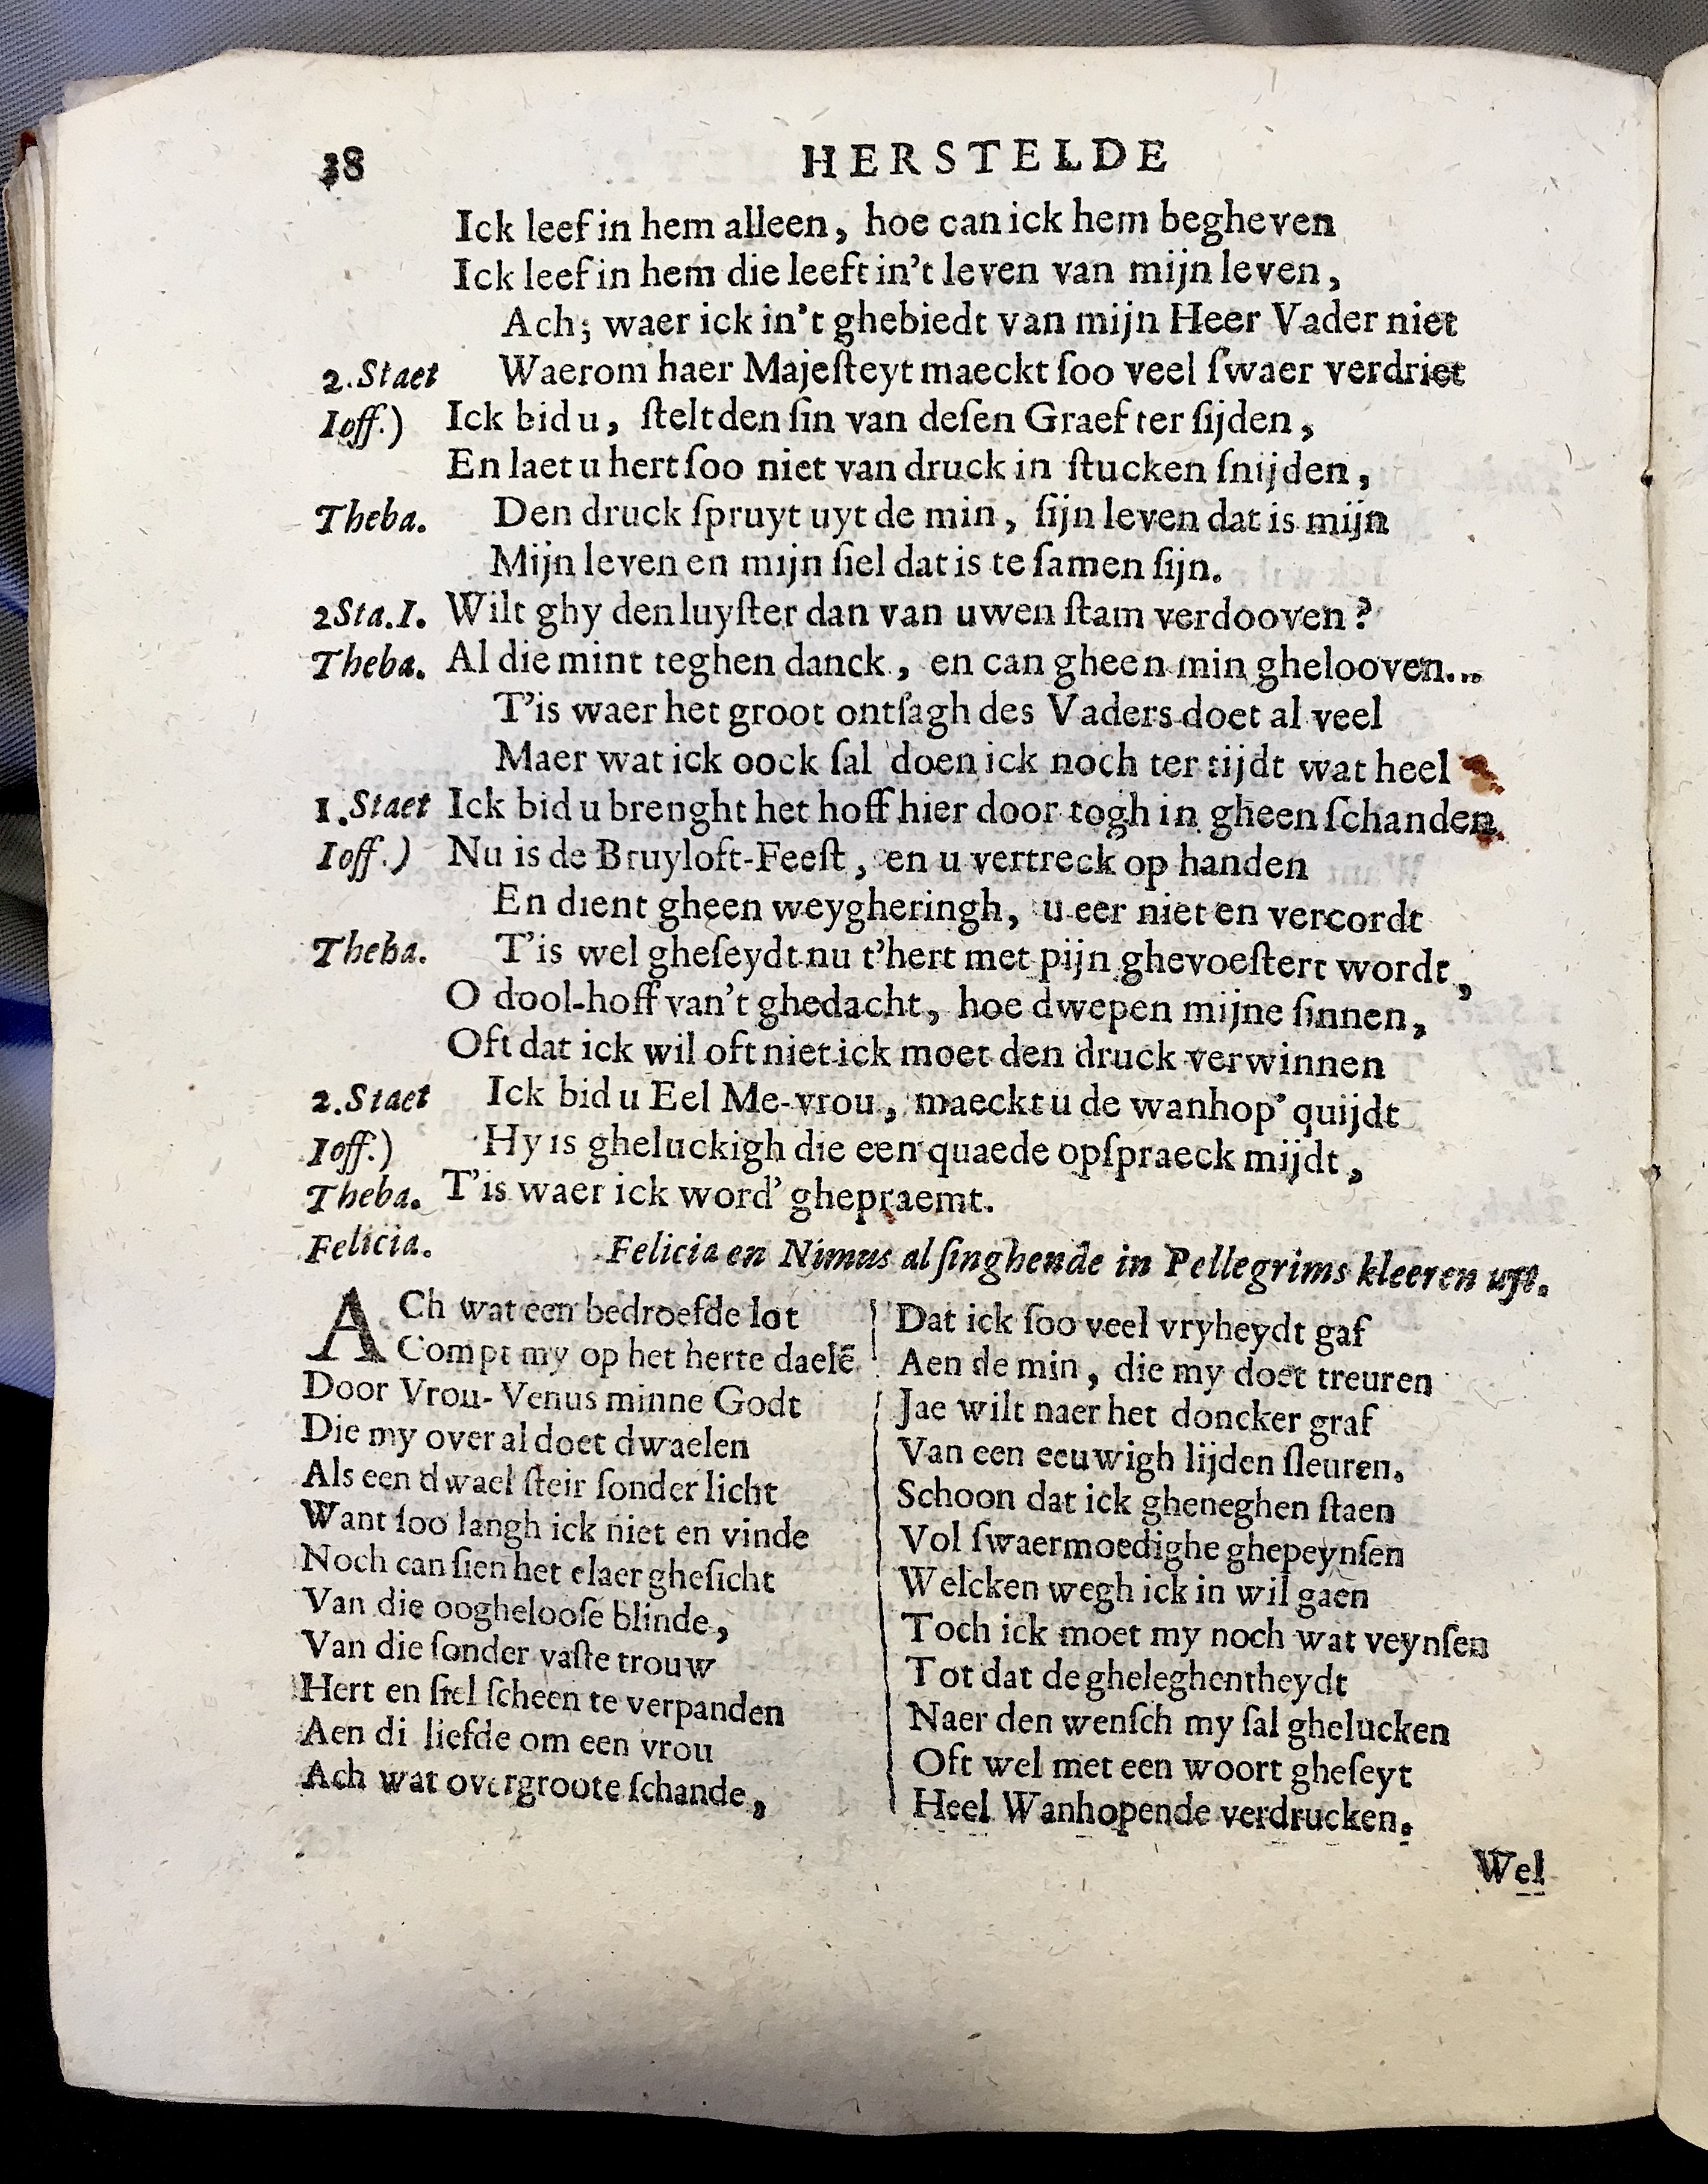 38 HERSTELDE
Ick leef in hem alleen, hoe can ick hem begheven
Ick leef in hem die leeft in't leven van mijn leven,
Ach; waer ick in't ghebiedt van mijn Heer Vader niet
2.Staet Waerom haer Majeſteyt maeckt ſoo veel ſwaer verdriet
Ioff.) Ick bid u, ſtelt den ſin van deſen Graef ter ſijden,
En laet u hert ſoo niet van druck in ſtucken ſnijden,
Theba. Den druck ſpruyt uyt de min, ſijn leven dat is mijn
Mijn leven en mijn ſiel dat is te ſamen ſijn.
2Sta.I. Wilt ghy den luyſter dan van uwen ſtam verdooven?
Theba. Al die mint teghen danck, en can gheen min ghelooven...
T'is waer het groot ontſagh des Vaders doet al veel
Maer wat ick oock ſal doen ick noch ter tijdt wat heel
1.Staet Ick bid u brenght het hoff hier door togh in gheen ſchanden
Ioff.) Nu is de Bruyloft-Feeſt, en u vertreck op handen
En dient gheen weygheringh, u eer niet en vercordt
Theba. T'is wel gheſeydt nu t'hert met pijn ghevoeſtert wordt,
O dool-hoff van't ghedacht, hoe dwepen mijne ſinnen,
Oft dat ick wil oft niet ick moet den druck verwinnen
2.Staet Ick bid u Eel Me-vrou, maeckt u de wanhop' quijdt
Ioff.) Hy is gheluckigh die een quaede opſpraeck mijdt,
Theba. T'is waer ick word' ghepraemt.
Felicia. Felicia en Nimus al ſinghende in Pellegrims kleeren uyt.
ACh wat een bedroefde lot
Compt my op het herte daelē
Door Vrou-Venus minne Godt
Die my over al doet dwaelen
Als een dwael ſteir ſonder licht
Want ſoo langh ick niet en vinde
Noch can ſien het claer gheſicht
Van die ooghelooſe blinde,
Van die ſonder vaſte trouw
Hert en ſiel ſcheen te verpanden
Aen di liefde om een vrou
Ach wat overgroote ſchande,
Dat ick ſoo veel vryheydt gaf
Aen de min, die my doet treuren
Jae wilt naer het doncker graf
Van een eeuwigh lijden ſleuren.
Schoon dat ick gheneghen ſtaen
Vol ſwaermoedighe ghepeynſen
Welcken wegh ick in wil gaen
Toch ick moet my noch wat veynſen
Tot dat de gheleghentheydt
Naer den wenſch my ſal ghelucken
Oft wel met een woort gheſeyt
Heel Wanhopende verdrucken.
Wel